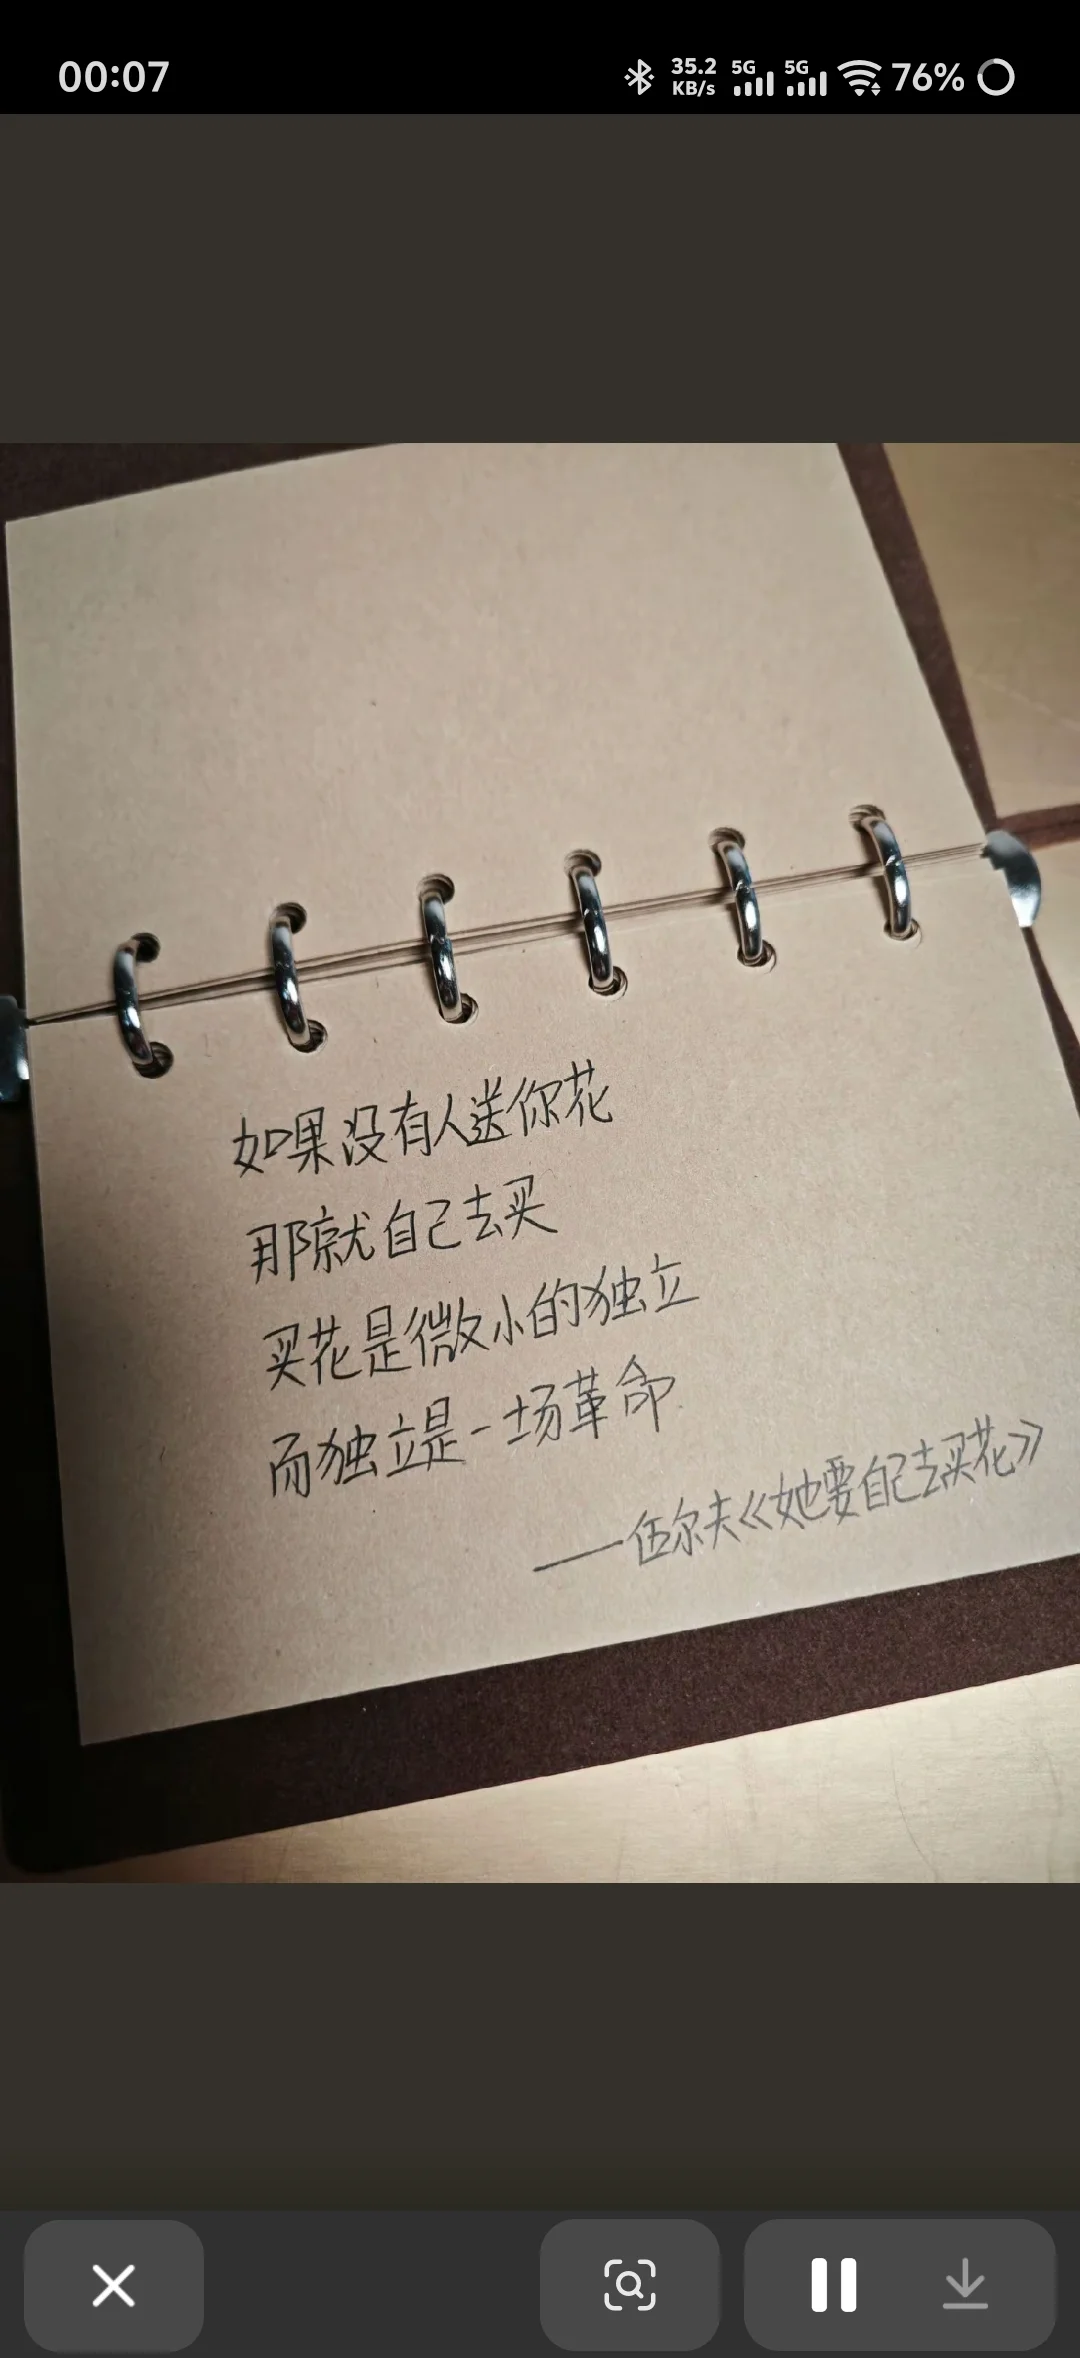 00:07
35.2 KB/s 5G 5G 76%
如果没有人送你花
那就自己去买
买花是微小的独立
而独立是一场革命
——伍尔夫《她要自己去买花》